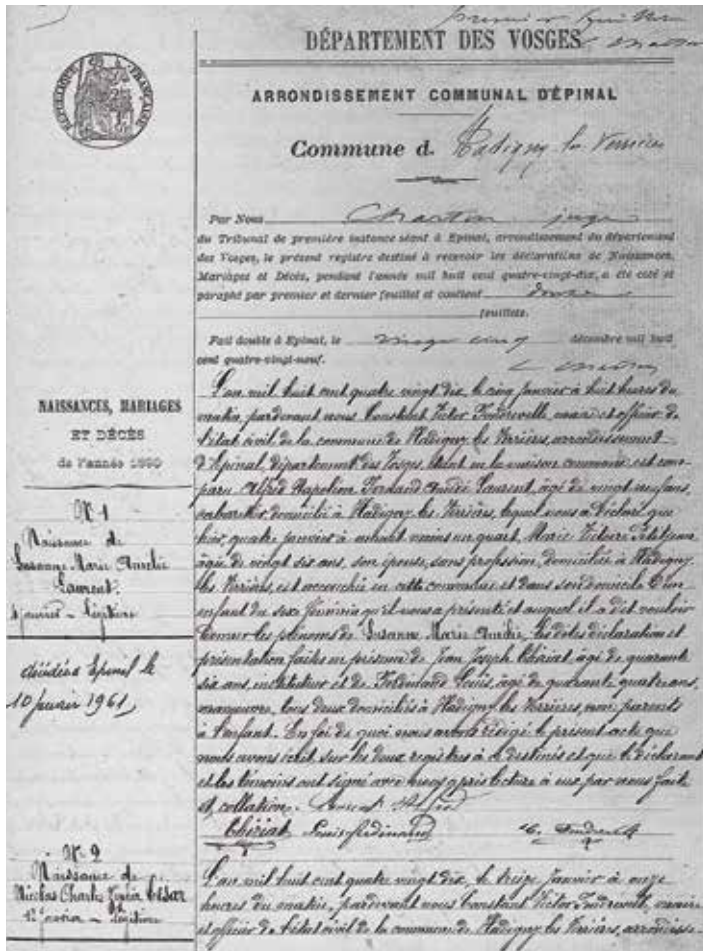 DÉPARTEMENT DES VOSGES
RÉPUBLIQUE FRANÇAISE
ARRONDISSEMENT COMMUNAL D'ÉPINAL
Commune d. Hadigny les Verrières
Par Nous Charton juge
du Tribunal de première instance séant à Epinal, arrondissement du département
des Vosges, le présent registre destiné à recevoir les déclarations de Naissances,
Mariages et Décès, pendant l'année mil huit cent quatre-vingt-dix, a été coté et
paraphé par premier et dernier feuillet et contient douze
feuillets.
Fait double à Epinal, le vingt cinq décembre mil huit
cent quatre-vingt-neuf.
NAISSANCES, MARIAGES
ET DÉCÈS
de l'année 1890
N° 1
Naissance de
Suzanne Marie Aurélie
Laurent.
4 janvier - Légitime
décédée Epinal le
10 janvier 1961,
L'an mil huit cent quatre vingt dix, le cinq janvier à huit heures du
matin, pardevant nous Constant Victor Tondreville, maire et officier de
l'état civil de la commune de Hadigny les Verrières, arrondissement
d'Epinal, département des Vosges, étant en la maison commune, est com-
paru Alfred Napoléon Fernand Amédé Laurent, âgé de vingt neuf ans,
cabaretier, domicilié à Hadigny les Verrières, lequel nous a déclaré que
hier, quatre janvier à minuit moins un quart, Marie Victoire Petitjean
âgée de vingt six ans, son épouse, sans profession, domiciliée à Hadigny
les Verrières, est accouchée en cette commune et dans son domicile d'un
enfant du sexe féminin qu'il nous a présenté et auquel il a dit vouloir
donner les prénoms de Suzanne Marie Aurélie, les dites déclaration et
présentation faites en présence de Jean Joseph Thiriat, âgé de quarante
six ans, instituteur et de Ferdinand Louis, âgé de quarante quatre ans,
manœuvre, tous deux domiciliés à Hadigny les Verrières, non parents
à l'enfant. En foi de quoi nous avons rédigé le présent acte que
nous avons écrit sur les deux registres à ce destinés et que le déclarant
et les témoins ont signé avec nous après lecture à eux par nous faite
et collation.
Thiriat Louis Ferdinand
N° 2
Naissance de
Nicolas Charles César
12 janvier - Légitime
L'an mil huit cent quatre vingt dix, le treize janvier à onze
heures du matin, pardevant nous Constant Victor Tondreville, maire
et officier de l'état civil de la commune de Hadigny les Verrières, arrondisse-